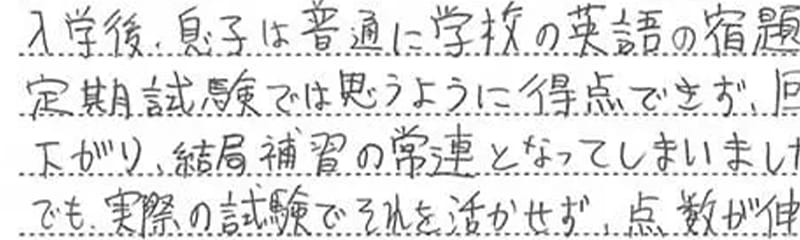 入学後、息子は普通に学校の英語の宿題
定期試験では思うように得点できず、回
下がり、結局補習の常連となってしまいました
でも、実際の試験でそれを活かせず、点数が伸